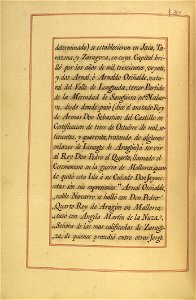 determinado) se establecieron en Jaca, Ta-
razona, y Zaragoza, en cuya Capital bri-
lló por los años de mil trescientos, sesenta,
y dos Arnal, ó Arnaldo Ozcidalde, natu-
ral del Valle de Languida, tercer Partido
de la Merindad de Sangüesa en Nabar-
ra, desde donde pasó (dice el anotado Rey
de Armas Don Sebastian del Castillo en
Certificacion de trece de Octubre de mil, se-
tecientos, y quarenta, tratando de algunos
enlaces de Linage de Aragón) á servir
al Rey Don Pedro el Quarto, llamado el
Ceremonioso en la guerra de Mallorca, pues
de quitó esta Isla á su Cuñado Don Jayme:
estas son sus expresiones: " Arnal Ozcidalde,
" noble Navarro, se halló con Don Pedro
" Quarto Rey de Aragón en Mallorca:
" casó con Angela Martin de la Naza,
" Señora de las mas calificadas de Zarago-
za, de quienes procedió entre otros Jorge